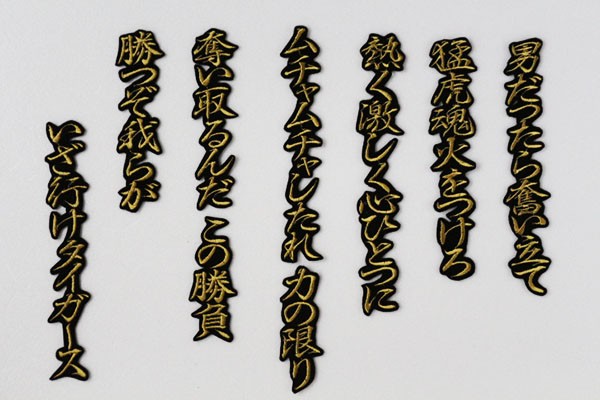 男だったら奮い立て
猛虎魂火をつけろ
熱く激しく心ひとつに
ムチャムチャしたれ 力の限り
奪い取るんだ この勝負
勝つぞ我らが
いざ行けタイガース